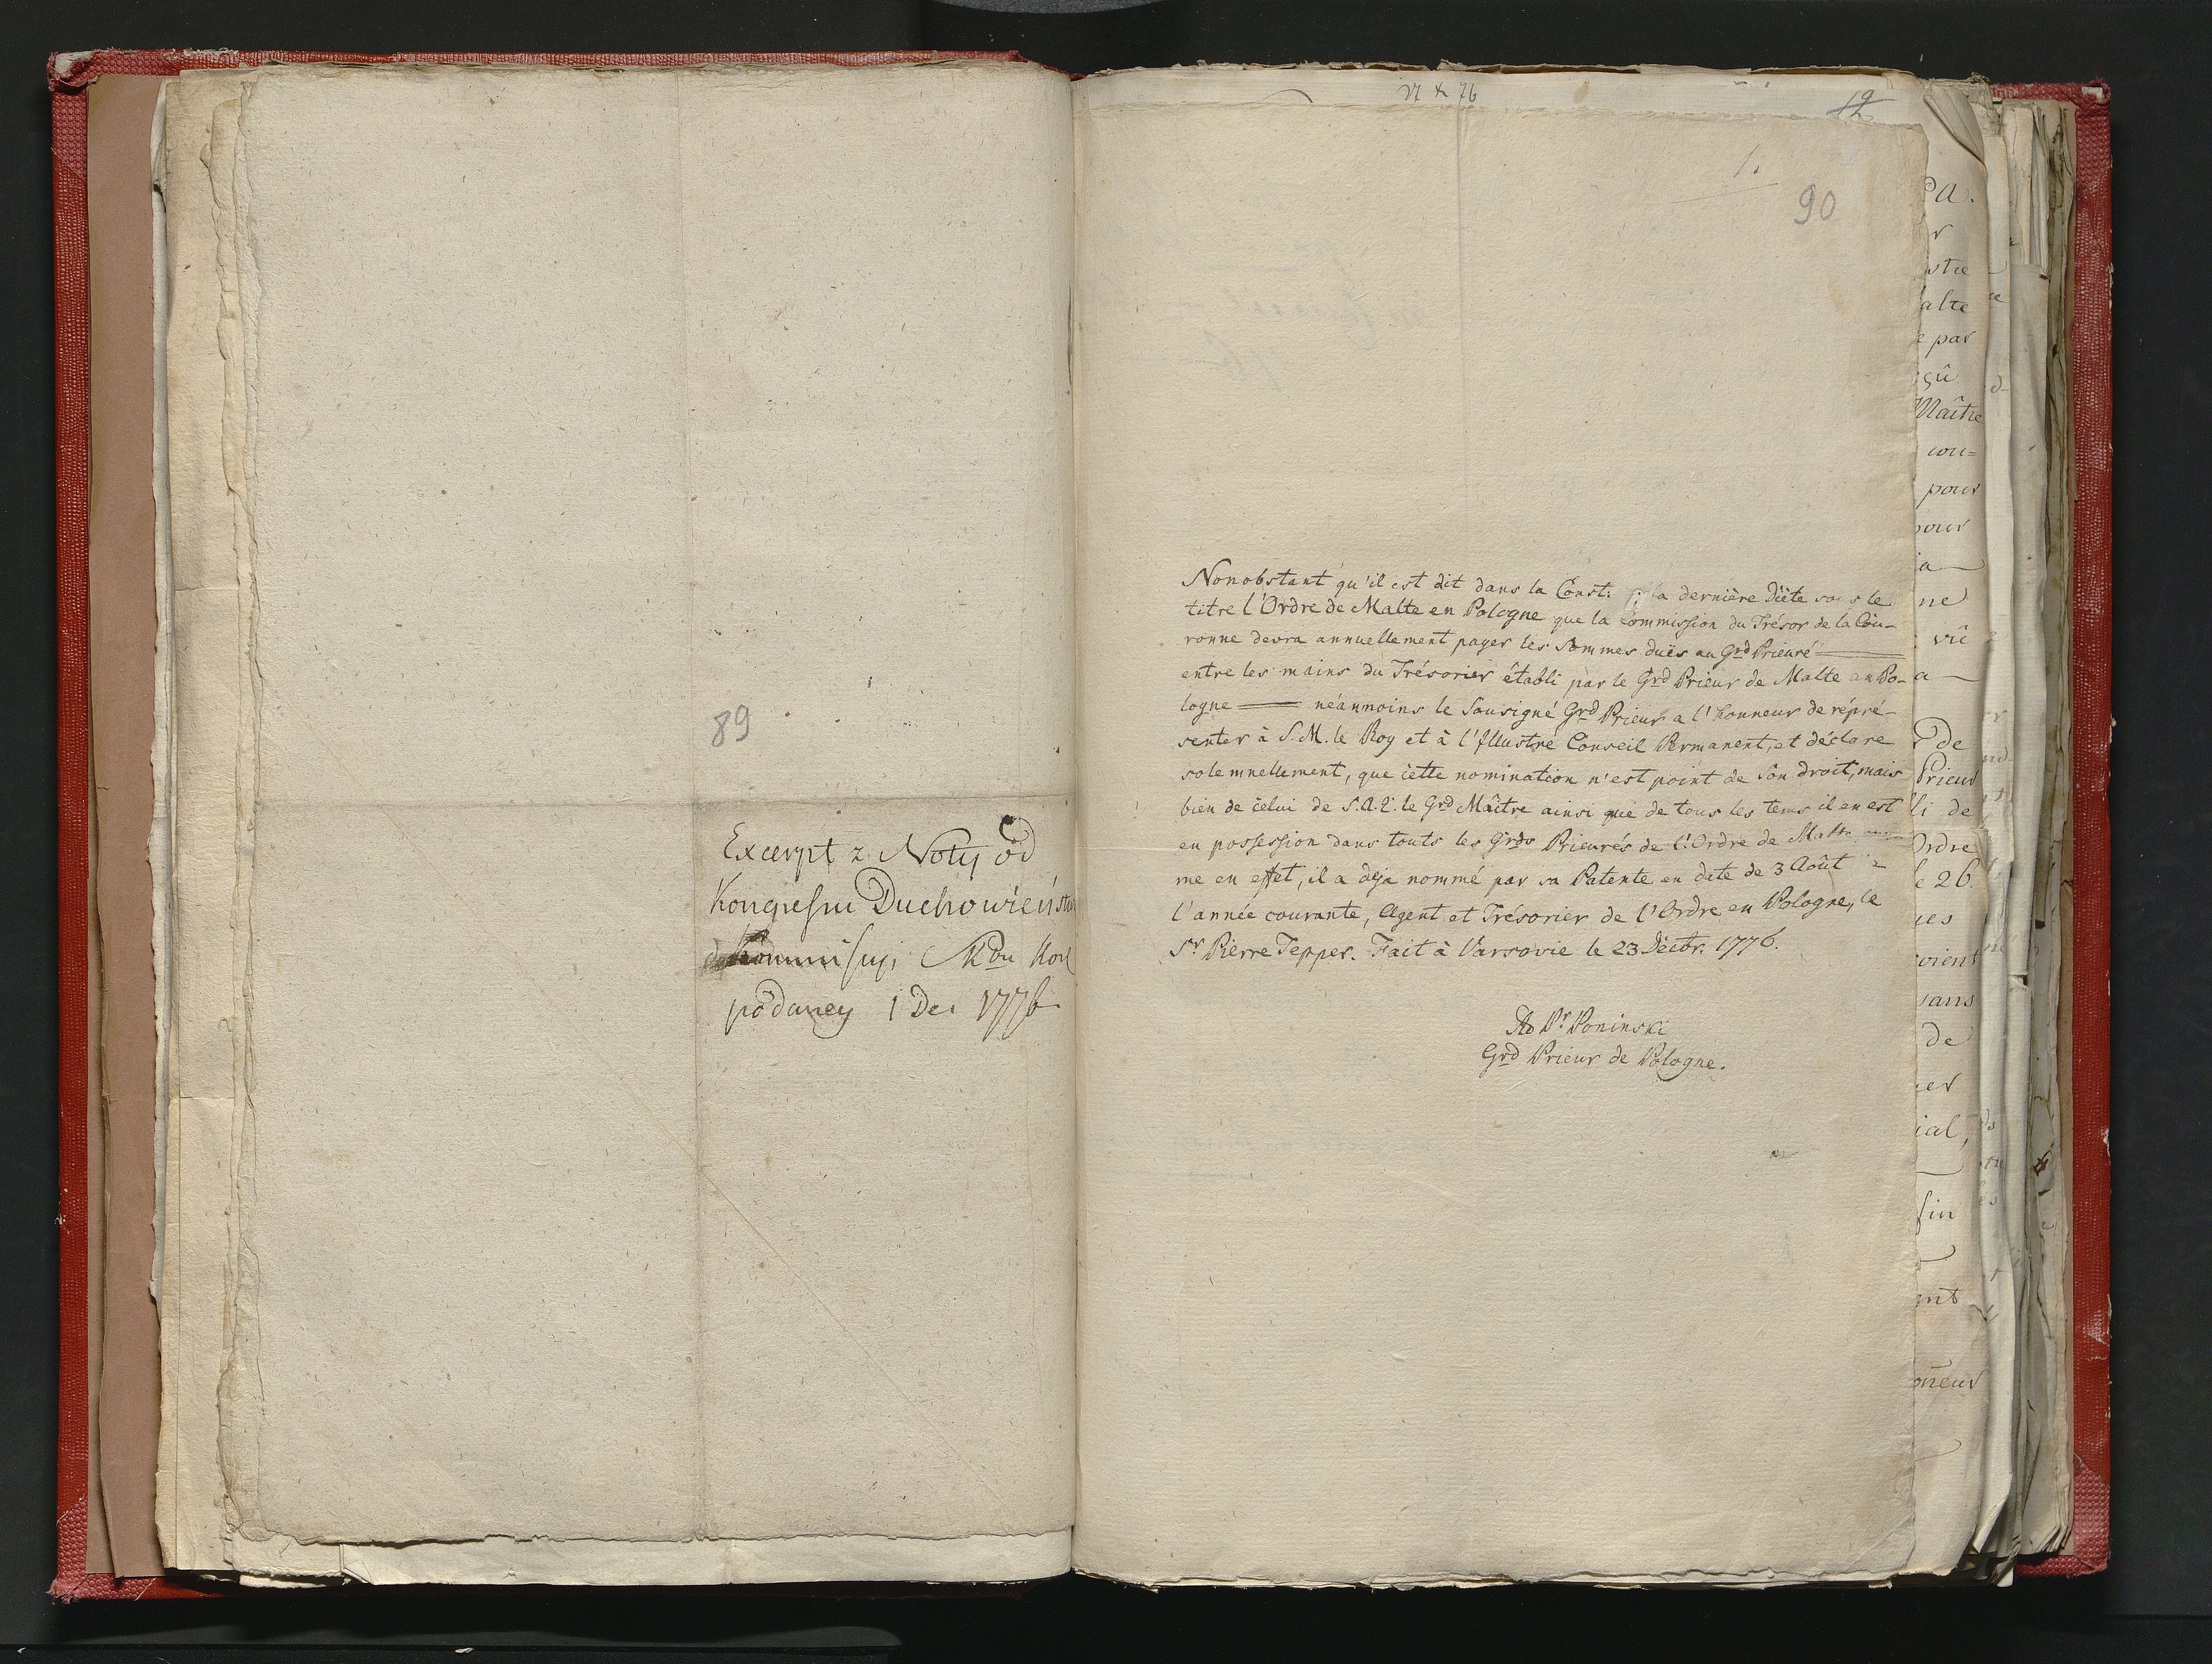 89
Excerpt z Noty od
Kongressu Duchowieństw
do Kommissyi Skbu Kor
podaney 1 De. 1776
90
Nonobstant qu'il est dit dans la Const: la dernière Diéte sous le
titre l'Ordre de Malte en Pologne que la Commission du Trésor de la Cou-
ronne devra annuellement payer les Sommes duës au Grd Prieuré
entre les mains du Trésorier établi par le Grd Prieur de Malte en Po-
logne néanmoins le Sousigné Grd Prieur a l'honneur de répré-
senter à S. M. le Roy et à l'Illustre Conseil Permanent, et déclare
solemnellement, que cette nomination n'est point de Son droit, mais
bien de celui de S. A. E. le Grd Maître ainsi que de tous les tems il en est
en possession dans touts les Grds Prieurés de l'Ordre de Malte
me en effet, il a deja nommé par sa Patente en date de 3 Août
l'année courante, Agent et Trésorier de l'Ordre en Pologne, le
Sr Pierre Tepper. Fait à Varsovie le 23 Décbr. 1776.
Ad Pr Poninski
Grd Prieur de Pologne.